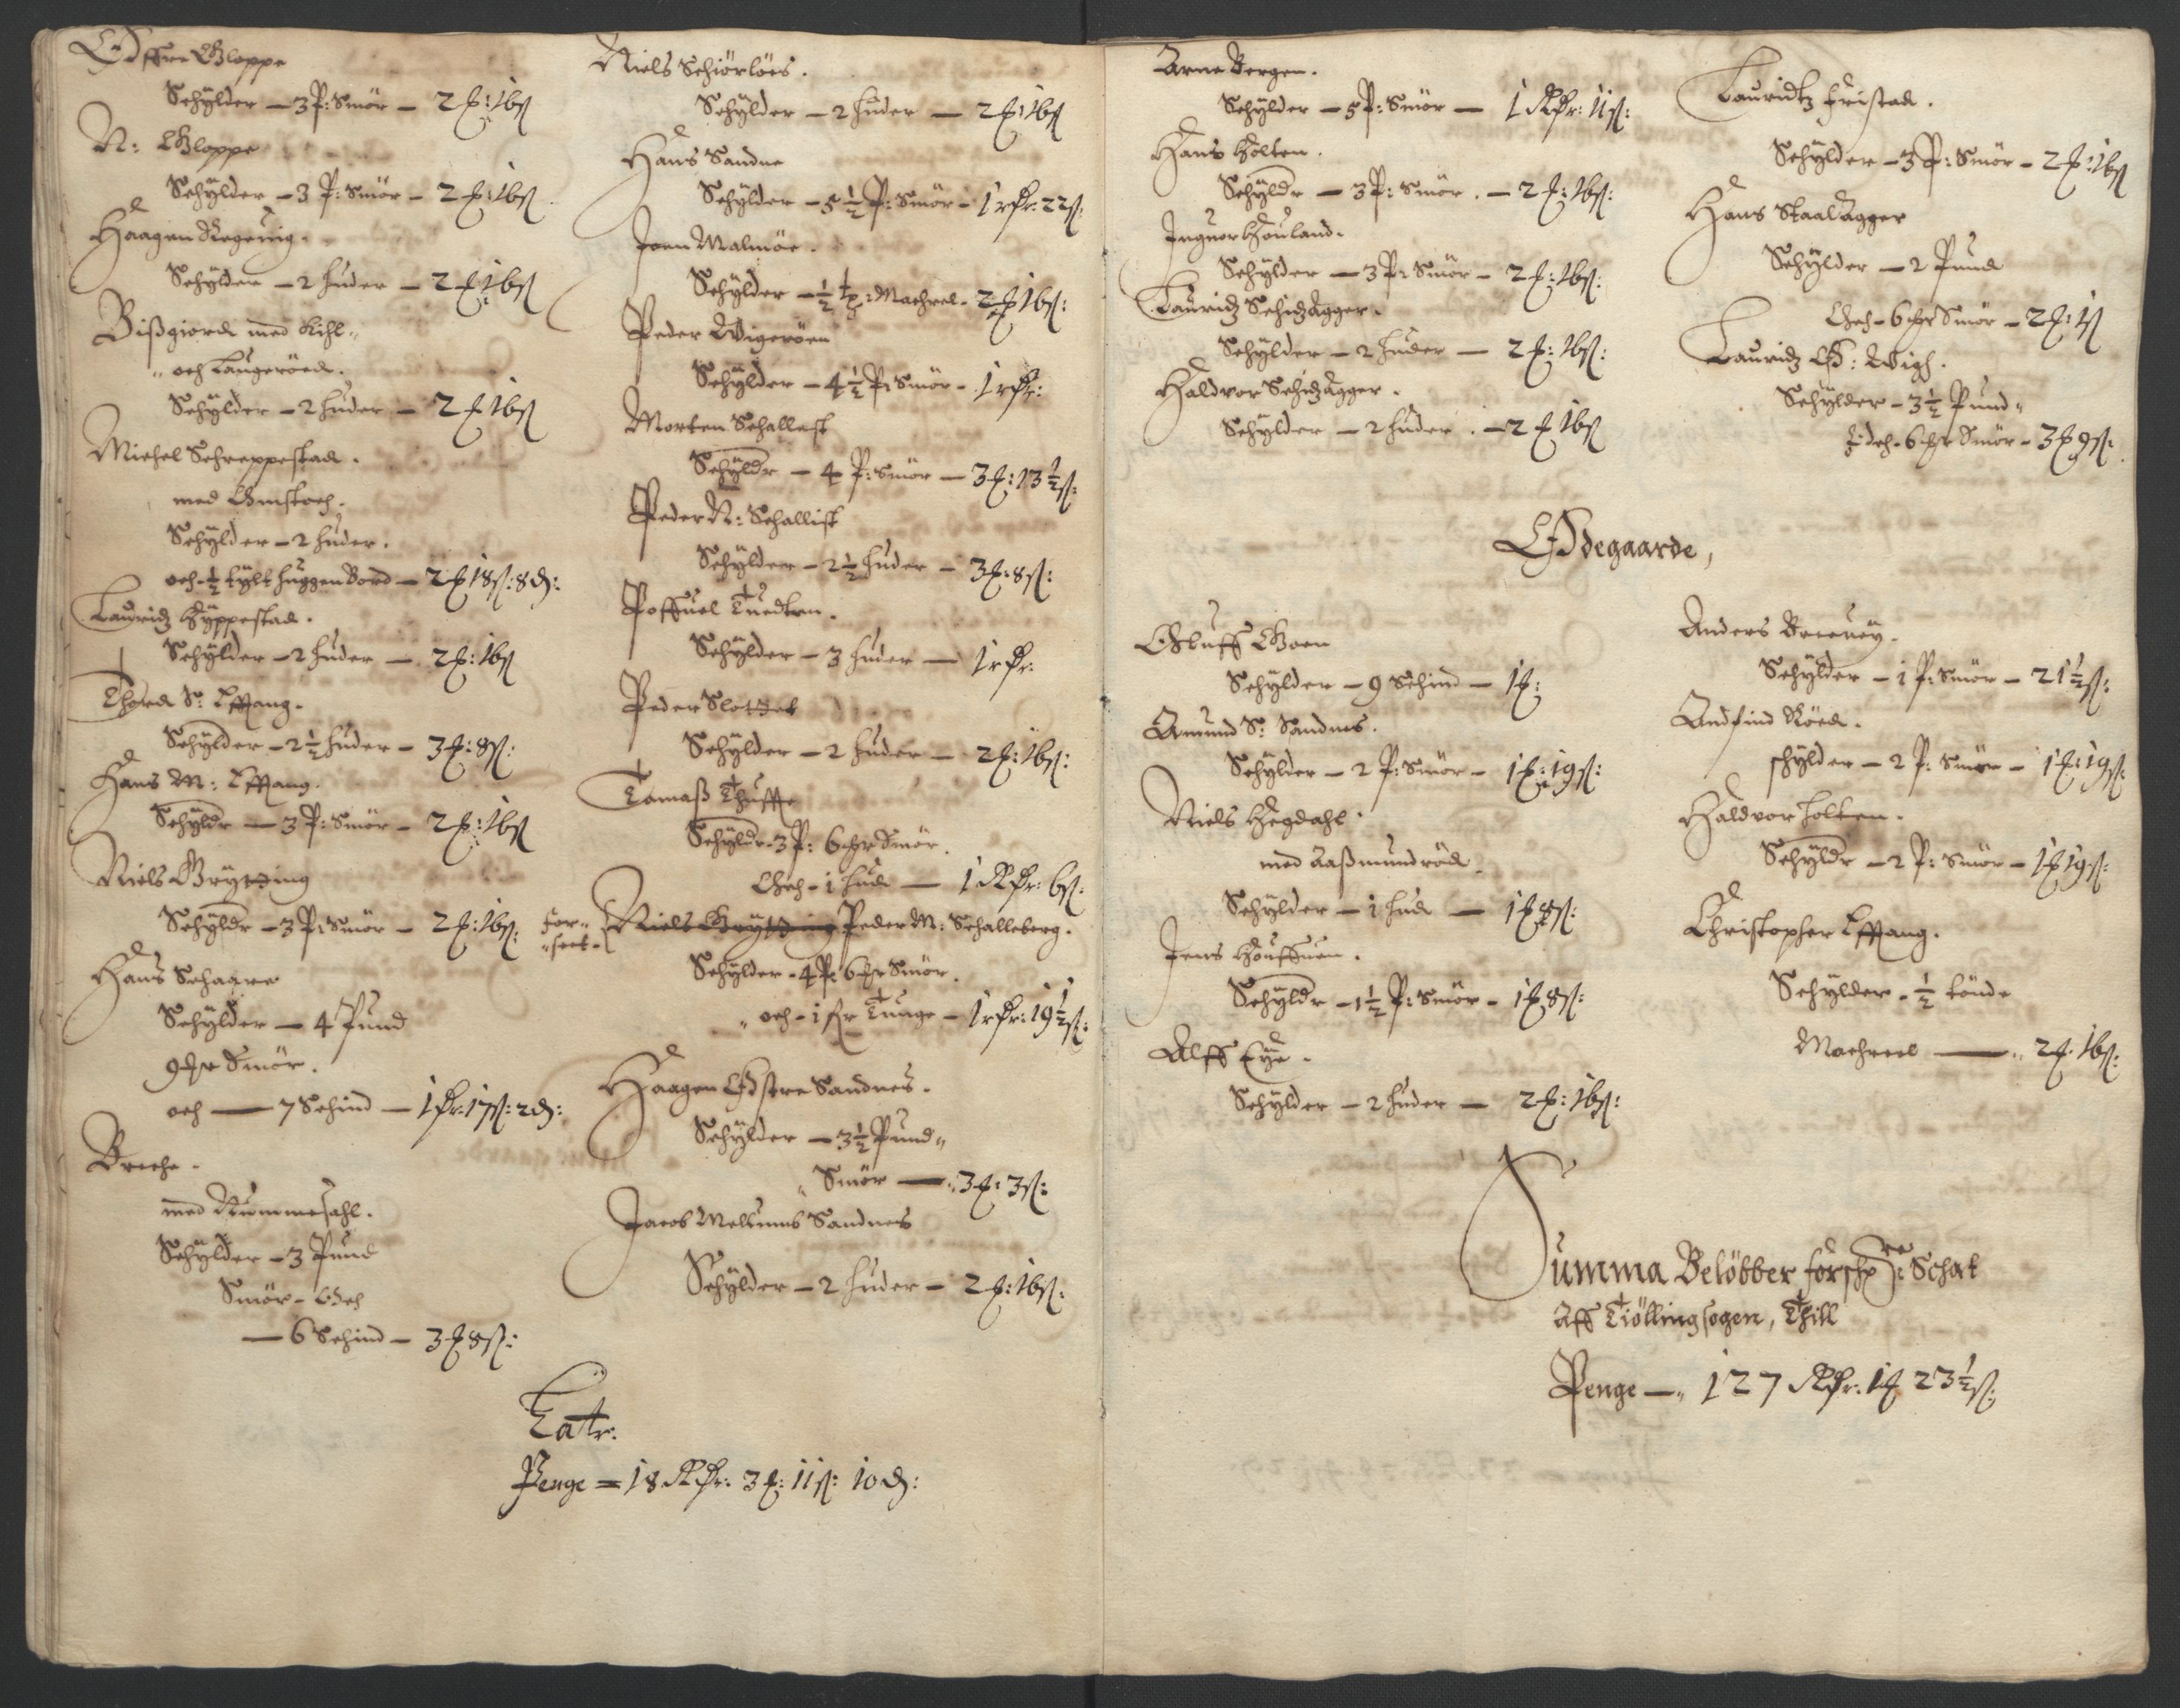 Øffre Gloppe
Schylder – 3 P: Smör – 2 £: 16 ß
N: Gloppe
Schylder – 3 P: Smör – 2 £: 16 ß
Haagen
Schylder – 2 huder – 2 £ 16 ß
Bißgiord med Kihl
och Laugeröed.
Schylder – 2 huder – 2 £ 16 ß
Michel Schreppestad.
med
Schylder – 2 huder.
och – ½ tylt huggen Bord – 2 £ 18 ß: 8 d:
Lauridz Hyppestad.
Schylder – 2 huder – 2 £: 16 ß
Thord S: Effang.
Schylder – 2½ huder – 3 £: 8 ß:
Hans M: Effang.
Schyldr – 3 P: Smör – 2 £: 16 ß
Niels Grytting
Schyldr – 3 P: Smör – 2 £: 16 ß:
Hans Schaare
Schylder – 4 Pund
9 Smör.
och – 7 Schind – 1 Rß: 17 ß: 2 d:
Breche.
med Rummesahl.
Schylder – 3 Pund
Smör – Och
– 6 Schind – 3 £ 8 ß:
Niels Schiörlöes.
Schylder – 2 huder – 2 £: 16 ß
Hans Sandne
Schylder – 5½ P: Smör – 1 rdr: 22 ß:
Joen Malmöe.
Schylder – ½ t: Machrel – 2 £ 16 ß:
Peder Wigeröen
Schylder – 4½ P: Smör – 1 rdr:
Morten Schallest
Schyldr – 4 P: Smör – 3 £: 13½ ß:
Peder N: Schallist
Schylder – 2½ huder – 3 £: 8 ß:
Poffuel Tuedten.
Schylder – 3 huder – 1 rdr:
Peder Slottet
Schylder – 2 huder – 2 £: 16 ß:
Tomaß Thuffte
Schyldr – 3 P: 6 Smör.
Och – 1 hud – 1 Rdr: 6 ß:
for-
seet
Niels Grytting Peder M: Schalleberg.
Schylder – 4 P: 6 Smör.
och – 1 Tunge – 1 rdr: 19½ ß:
Haagen Östre Sandnes.
Schylder – 3½ Pund
Smör – 3 £: 3 ß:
Jacob Mellumb Sandnes
Schylder – 2 huder – 2 £: 16 ß:
Latr:
Penge = 18 Rdr: 3 £: 11 ß: 10 d:
Arne Bergen.
Schylder – 5 P: Smör – 1 Rdr: 11 ß:
Hans Holten.
Schyldr – 3 P: Smör. – 2 £: 16 ß:
Inguor Houland.
Schylder – 3 P: Smör – 2 £: 16 ß:
Lauridz
Schylder – 2 huder – 2 £: 16 ß:
Haldvor
Schylder – 2 huder. – 2 £ 16 ß
Lauridtz Fristad.
Schylder – 3 P: Smör – 2 £: 16 ß
Hans Staalagger
Schylder – 2 Pund
Och – 6 Smör – 2 £: 1 ß
Lauridz Ø: Wigh.
Schylder – 3½ Pund
Och – 6 Smör – 3 £ 9 ß:
Ødegaarde,
Oluff Goen
Schylder – 9 Schind – 1 £:
Amund S: Sandnes.
Schylder – 2 P: Smör – 1 £: 19 ß:
Niels Hegdahl
med Aaßmundröd.
Schylder – 1 hud – 1 £ 8 ß:
Jens Houffuen.
Schyldr – 1½ P: Smör – 1 £ 8 ß:
Alff Eye.
Schylder – 2 huder – 2 £: 16 ß:
Anders Breeuey.
Schylder – 1 P: Smör – 21½ ß:
Andfind Röed.
schylder – 2 P: Smör – 1 £: 19 ß:
Haldvor Holten.
Schyldr – 2 P: Smör – 1 £ 19 ß:
Christopher Effang.
Schylder – ½ tönde
Machreel – 2 £: 16 ß:
Summa Belöbber forschr:ne Schat
Aff Tiölling sogen, Thill
Penge – 127 Rdr: 1 £ 23½ ß: